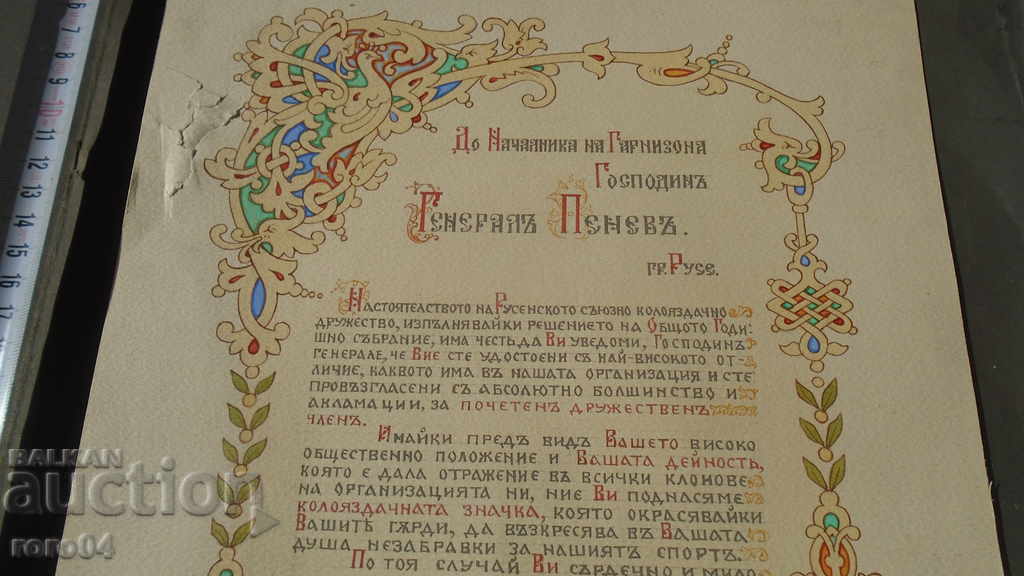 До Началника на Гарнизона
Господинъ
Генералъ Пеневъ.
гр. Русе.
Настоятелството на Русенското съюзно колояздачно
дружество, изпълнявайки решението на Общото Годи:
шно събрание, има честь, да Ви уведоми, Господинъ
Генерале, че Вие сте удостоени съ най-високото от-
личие, каквото има въ нашата организация и сте
провъзгласени съ абсолютно болшинство и
акламации, за почетенъ дружественъ
членъ.
Имайки предъ видъ Вашето високо
обществено положение и Вашата дейность,
която е дала отражение въ всички клонове
на организацията ни, ние Ви поднасяме
колояздачната значка, която окрасявайки
Вашитѣ гърди, да възкресява въ Вашата
душа незабравки за нашиятъ спортъ.
По тоя случай Ви сърдечно и мило
6
7
8
9
10
11
12
13
14
15
16
17
BALKAN
auction
roro04